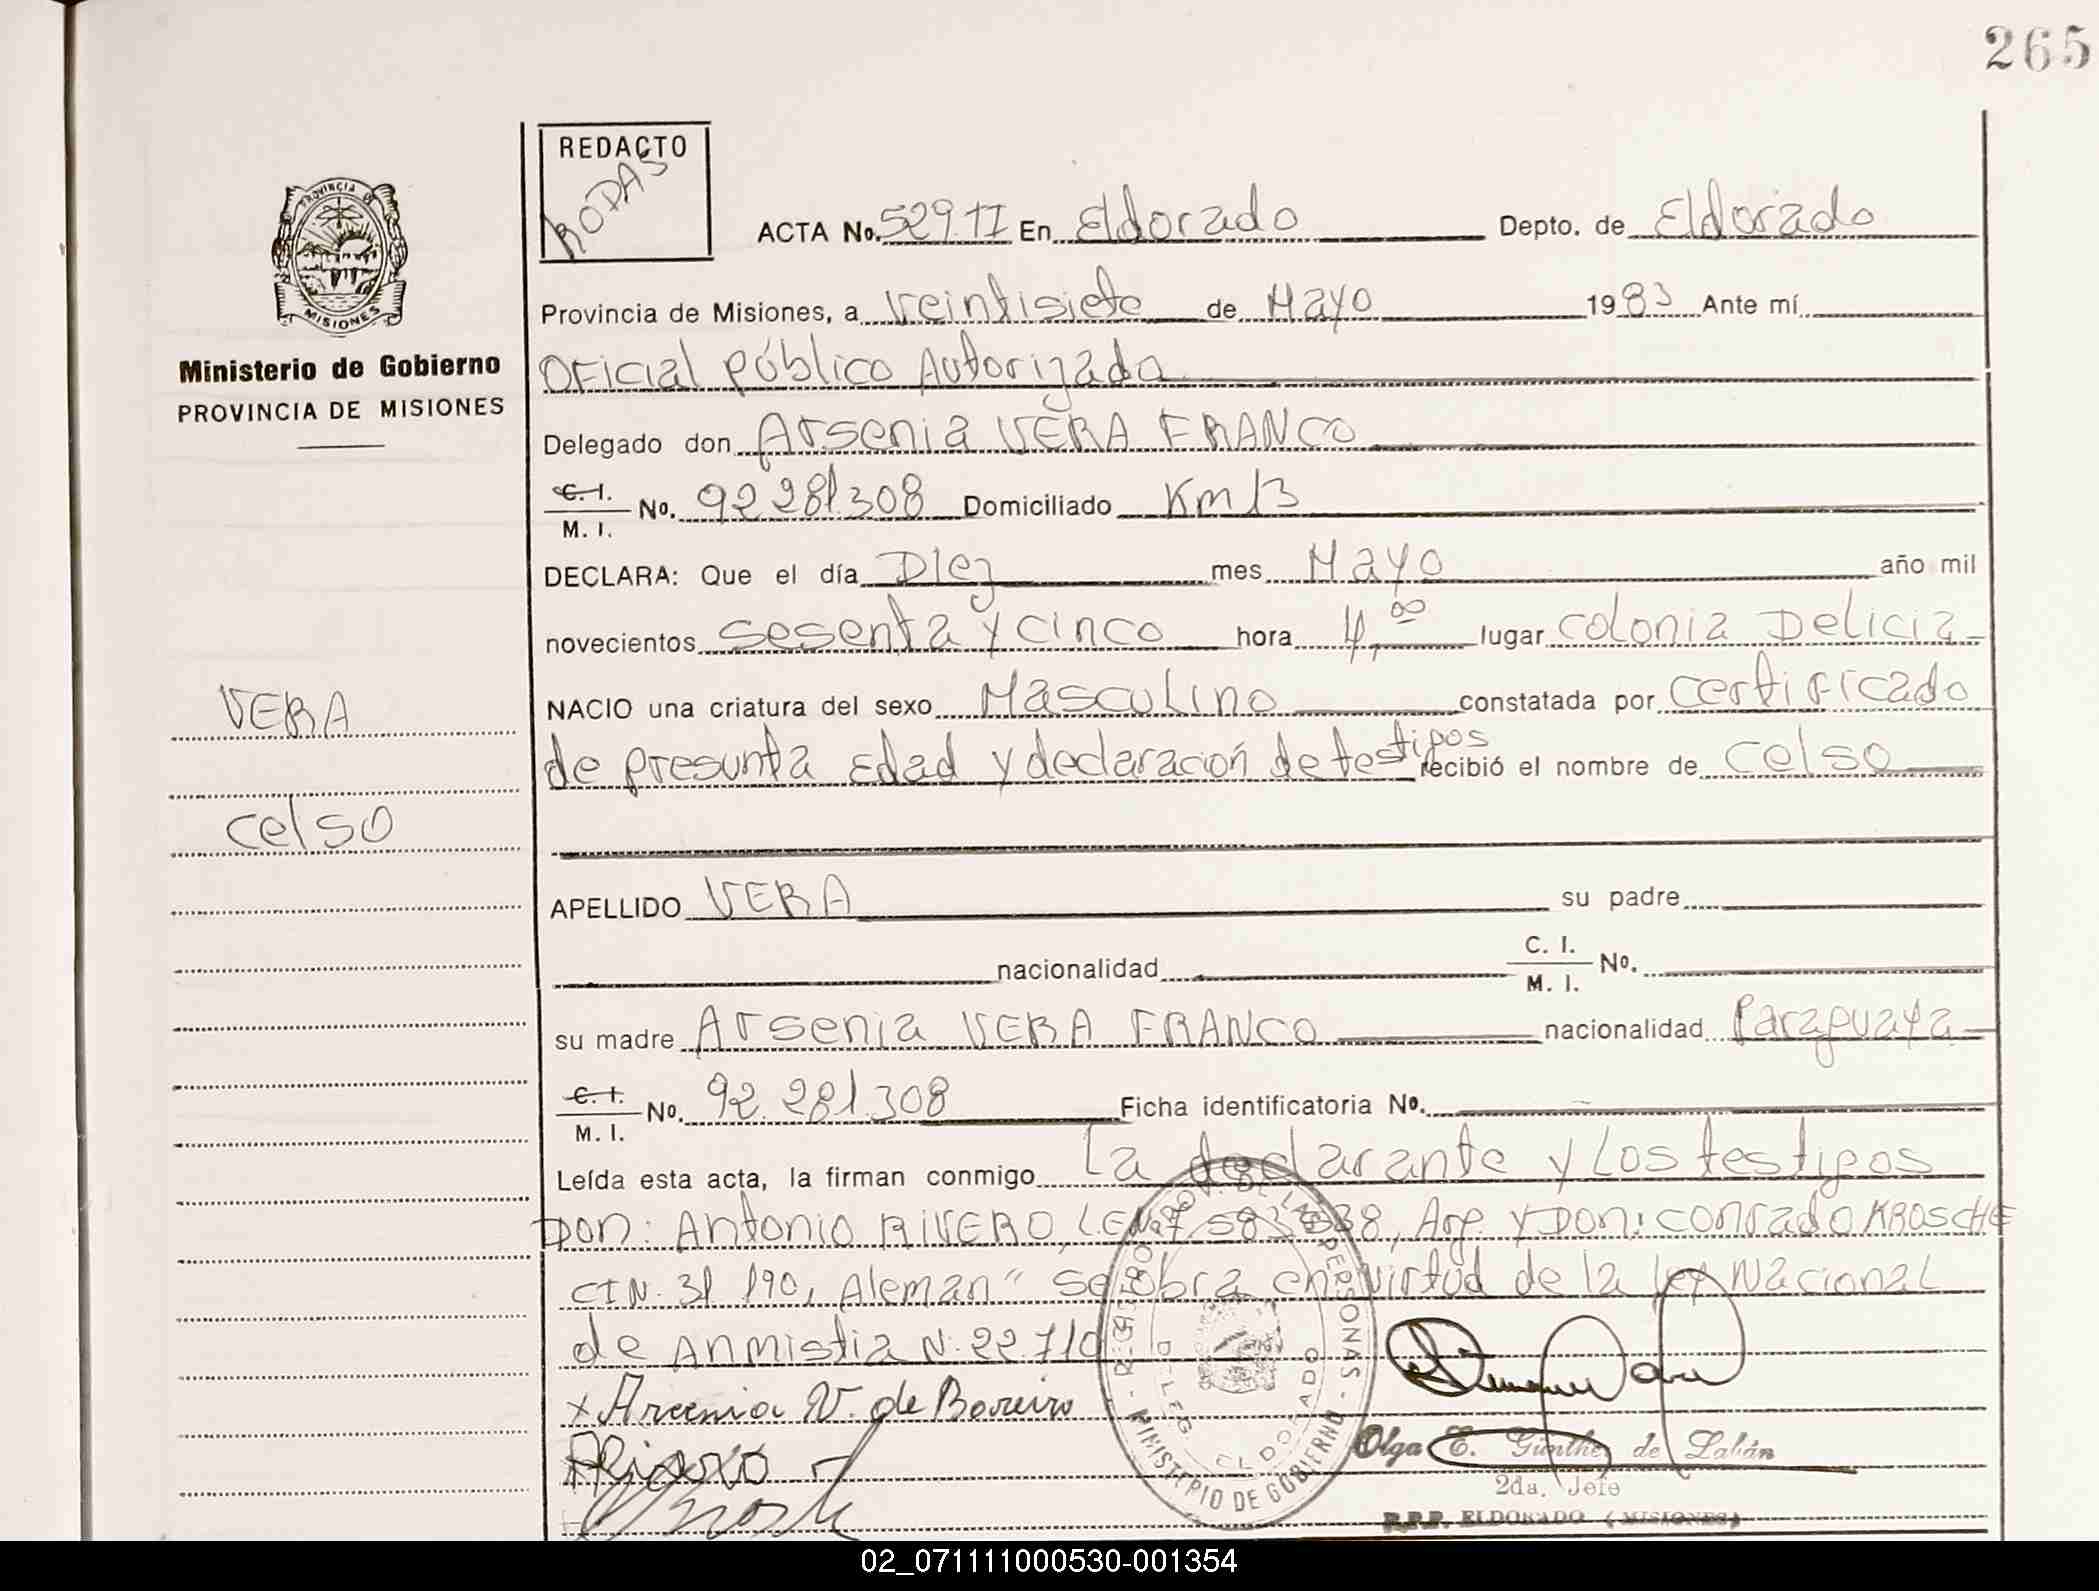 265
REDACTO
RODAS
PROVINCIA D
MISIONES
Ministerio de Gobierno
PROVINCIA DE MISIONES
ACTA No. 529.TI En Eldorado Depto. de Eldorado
Provincia de Misiones, a veintisiete de Mayo 1983 Ante mí
Oficial Público Autorizada
Delegado don Arsenia VERA FRANCO
C. I.
M. I. No. 92 281.308 Domiciliado Km 13
DECLARA: Que el día Diez mes Mayo año mil
novecientos sesenta y cinco hora 4,00 lugar Colonia Delicia
NACIO una criatura del sexo Masculino constatada por certificado
de presunta Edad y declaración de testigos recibió el nombre de Celso
VERA
Celso
APELLIDO VERA su padre
nacionalidad C. I.
M. I. No.
su madre Arsenia VERA FRANCO nacionalidad Paraguaya
C. I.
M. I. No. 92.281.308 Ficha identificatoria No.
Leída esta acta, la firman conmigo La declarante y Los testigos
Don: Antonio RIVERO, L.E.N. 7 583 538, Arg. y Don: Conrado KROSCHE
CIN. 31 190, Alemán" se labra en virtud de la ley Nacional
de Anmistia N. 22.710
x Arcenia V. de Boreiro
REGISTRO PROV. DE LAS PERSONAS - MINISTERIO DE GOBIERNO -
DELEG ELDORADO
Olga E. Günther de Labán
2da. Jefe
R.P.P. ELDORADO (MISIONES)
02_071111000530-001354